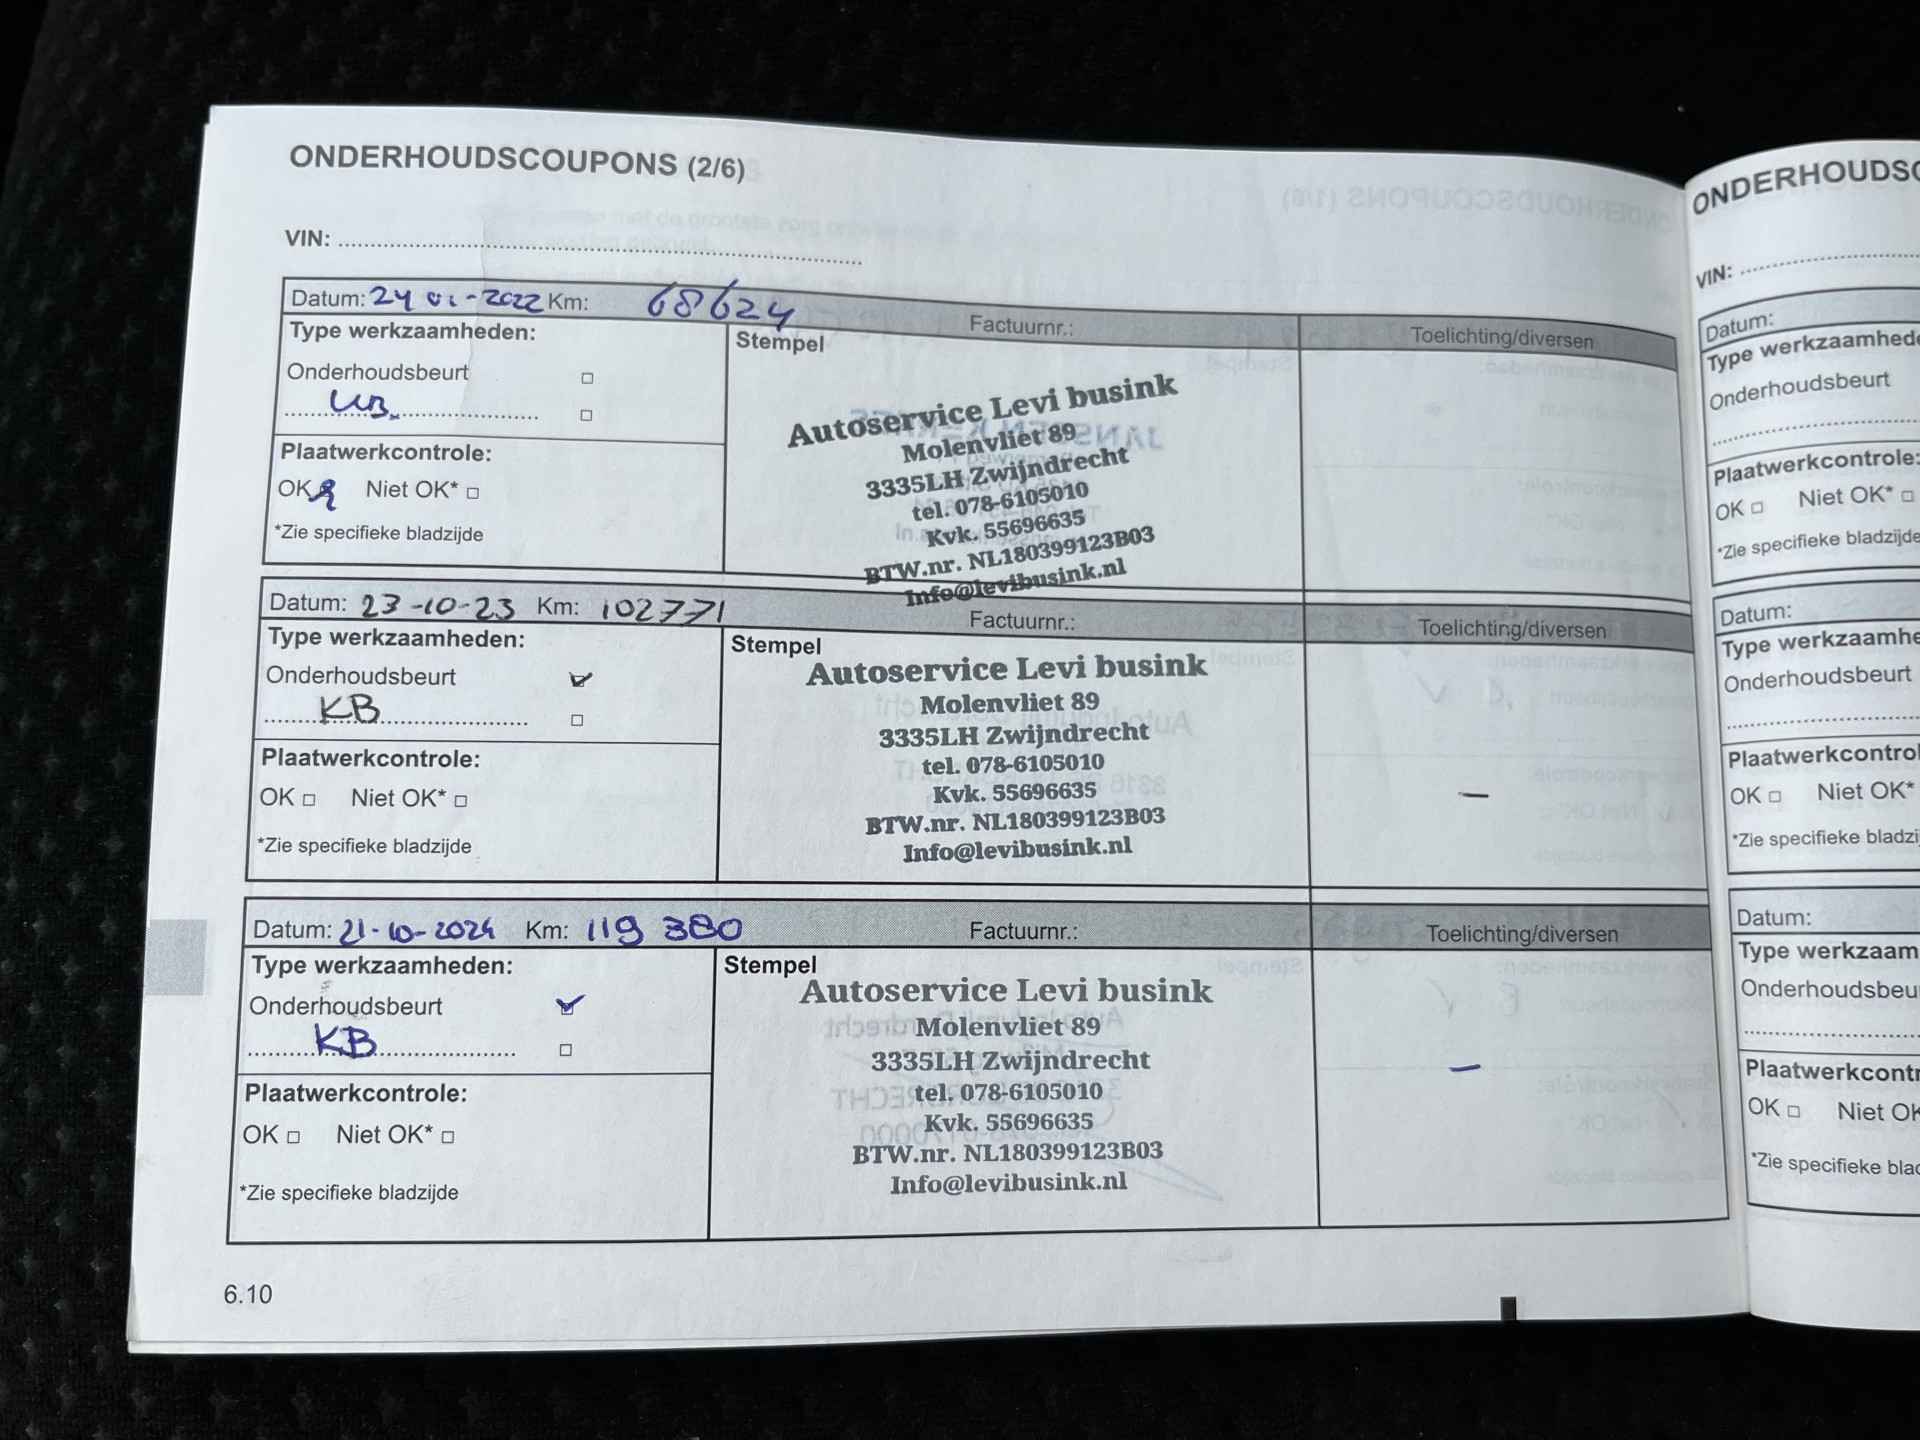 ONDERHOUDSCOUPONS (2/6)
VIN:
Datum: 24 01-2022 Km: 68624 Factuurnr.: Toelichting/diversen
Type werkzaamheden:
Onderhoudsbeurt
Plaatwerkcontrole:
OK Niet OK*
*Zie specifieke bladzijde
Stempel
Autoservice Levi busink
Molenvliet 89
3335LH Zwijndrecht
tel. 078-6105010
Kvk. 55696635
BTW.nr. NL180399123B03
Info@levibusink.nl
Datum: 23-10-23 Km: 102771 Factuurnr.: Toelichting/diversen
Type werkzaamheden:
Onderhoudsbeurt
KB
Plaatwerkcontrole:
OK Niet OK*
*Zie specifieke bladzijde
Stempel
Autoservice Levi busink
Molenvliet 89
3335LH Zwijndrecht
tel. 078-6105010
Kvk. 55696635
BTW.nr. NL180399123B03
Info@levibusink.nl
–
Datum: 21-10-2024 Km: 119 380 Factuurnr.: Toelichting/diversen
Type werkzaamheden:
Onderhoudsbeurt
KB
Plaatwerkcontrole:
OK Niet OK*
*Zie specifieke bladzijde
Stempel
Autoservice Levi busink
Molenvliet 89
3335LH Zwijndrecht
tel. 078-6105010
Kvk. 55696635
BTW.nr. NL180399123B03
Info@levibusink.nl
–
6.10
ONDERHOUDSC
VIN:
Datum:
Type werkzaamhede
Onderhoudsbeurt
Plaatwerkcontrole:
OK Niet OK*
*Zie specifieke bladzijde
Datum:
Type werkzaamhe
Onderhoudsbeurt
Plaatwerkcontrol
OK Niet OK*
*Zie specifieke bladzij
Datum:
Type werkzaam
Onderhoudsbeu
Plaatwerkcontr
OK Niet OK
*Zie specifieke blad